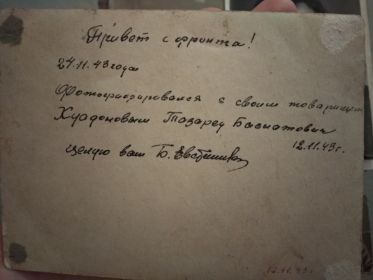 Привет с фронта!
27.11.43 года
Фотографировался с своим товарищем
Хуадоновым Тазарет Басиатович
12.11.43 г.
Целую ваш Б.
12.11.43 г.